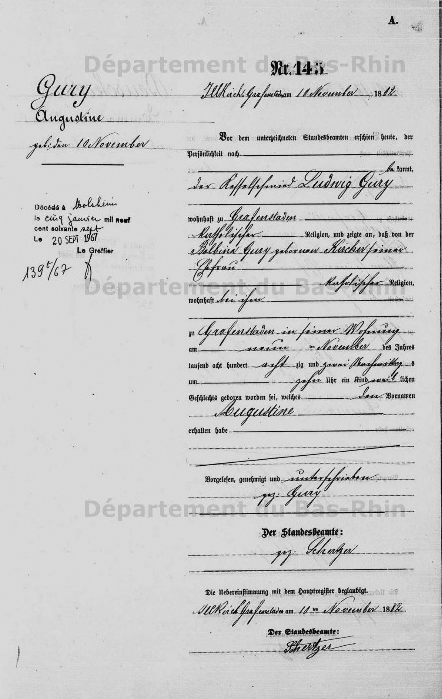 A.
Département du Bas-Rhin
Nr. 145
Gury
Augustine
geb. den 10 November
Illkirch Grafenstaden am 10 November 1882
Vor dem unterzeichneten Standesbeamten erschien heute, der
Persönlichkeit nach
bekannt,
der Kesselschmied Ludwig Gury
wohnhaft zu Grafenstaden
katholischer Religion, und zeigte an, daß von der
Gury gebornen Kircher seiner
Ehefrau
katholischer Religion,
wohnhaft bei ihm
Décédée à Molsheim
le cinq janvier mil neuf
cent soixante sept
Le 20 SEPT 1967
Le Greffier
139 /67
Département du Bas-Rhin
zu Grafenstaden in seiner Wohnung
am neun November des Jahres
tausend acht hundert achtzig und zwei Nachmittag s
um zehn Uhr ein Kind weiblichen
Geschlechts geboren worden sei, welches den Vornamen
Augustine
erhalten habe
Vorgelesen, genehmigt und unterschrieben
gez. Gury
Département du Bas-Rhin
Der Standesbeamte:
gez. Schertzer
Die Uebereinstimmung mit dem Hauptregister beglaubigt.
Illkirch Grafenstaden am 10 ten November 1882
Der Standesbeamte:
Schertzer